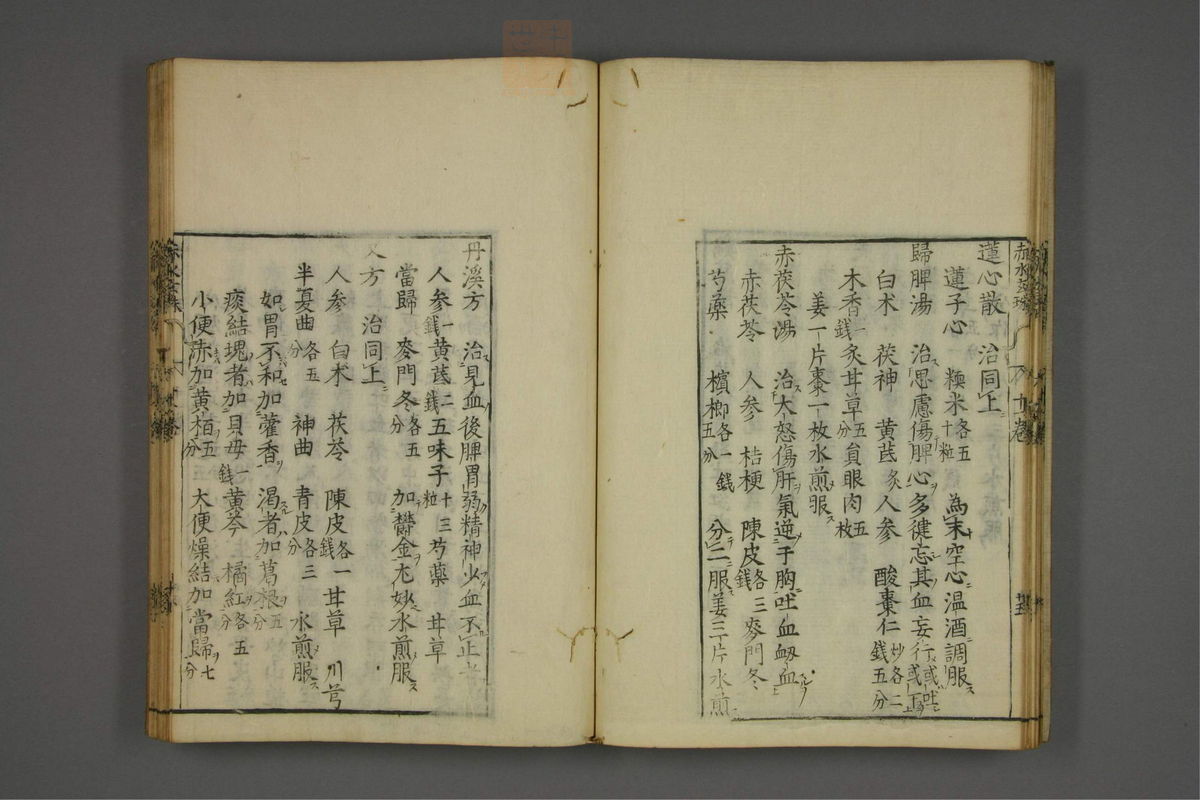 蓮心散　治同上
蓮子心　糗米各五十粒　為末空心温酒調服ス
歸脾湯　治思慮傷脾心多健忘其血妄行或吐或下
白朮　茯神　黄茋炙人参　酸棗仁炒各二錢五分
木香一錢炙甘草五分員眼肉五枚
姜一片棗一枚水煎服ス
赤茯苓湯　治大怒傷肝氣逆于胸吐血衂血
赤茯苓　人参　桔梗　陳皮各三錢麥門冬
芍藥　檳榔各一錢五分　分二服姜三片水煎
赤水玄珠　十卷
丹溪方　治見血後脾胃弱精神少血不止者
人参一錢黄茋二錢五味子十三粒芍藥　甘草
當歸　麥門冬各五分　加鬱金尤妙水煎服ス
又方　治同上
人参　白朮　茯苓　陳皮各一錢甘草　川芎
半夏曲各五分　神曲　青皮各三分　水煎服ス
如胃不和加藿香　渴者加葛根五分
痰結塊者加貝母一錢黄芩　橘紅各五
小便赤加黄栢五分　大便燥結加當歸七分